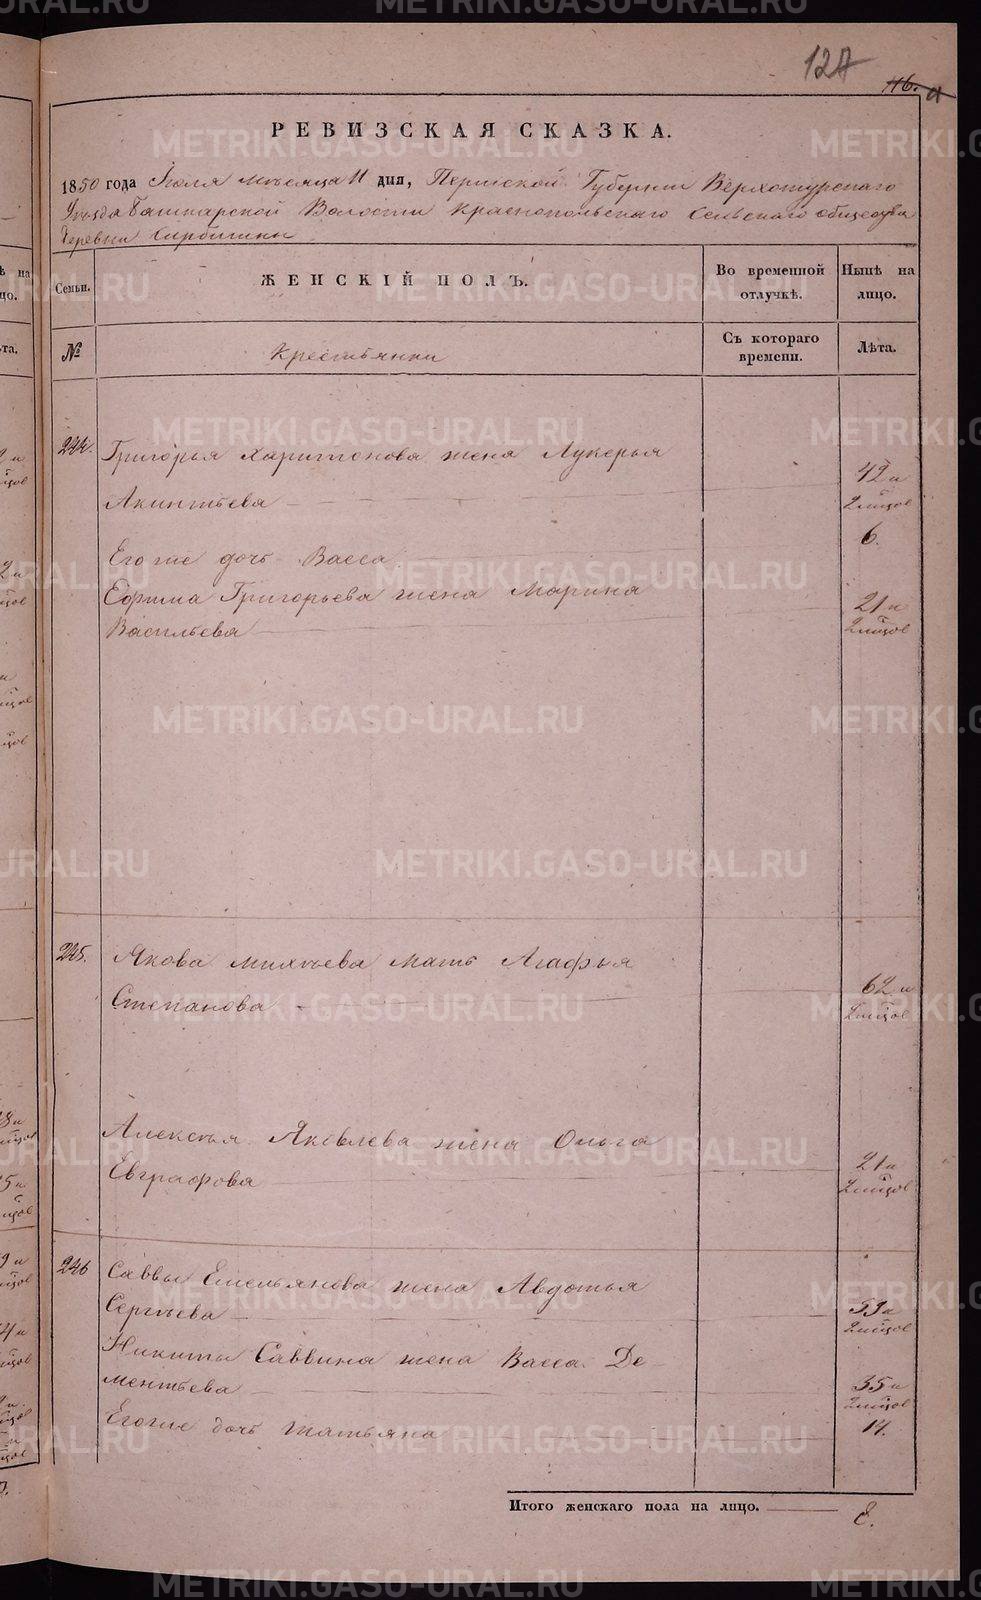 127
116.
РЕВИЗСКАЯ СКАЗКА.
1850 года Іюля месяца 11 дня, Пермской Губерніи Верхотурскаго
Уезда Башкарской Волости Краснопольскаго Сельскаго общества
деревни
Семьи.
ЖЕНСКІЙ ПОЛЪ.
Во временной отлучкѣ.
Нынѣ на лицо.
№
Крестьянки
Съ котораго времени.
Лѣта.
244. Григорья Харитонова жена Лукерья
Акинтьева 42 и 2 мцов
Его же дочь Васса 6.
Ефима Григорьева жена Марина
Васильева 21 и 2 мцов
245. Якова Михѣева мать Агафья
Степанова 62 и 2 мцов
Алексѣя Яковлева жена Ольга
Евграфова 21 и 2 мцов
246 Саввы Емельянова жена Авдотья
Сергѣева 53 и 2 мцов
Никиты Саввина жена Васса Де-
ментьева 35 и 2 мцов
Его же дочь Татьяна 11.
Итого женскаго пола на лицо. 8.
METRIKI.GASO-URAL.RU